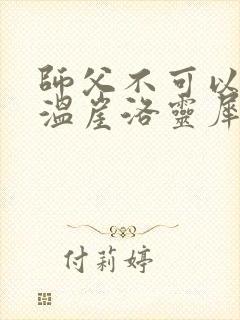 師父不可以
溫崖洛靈犀
付莉婷